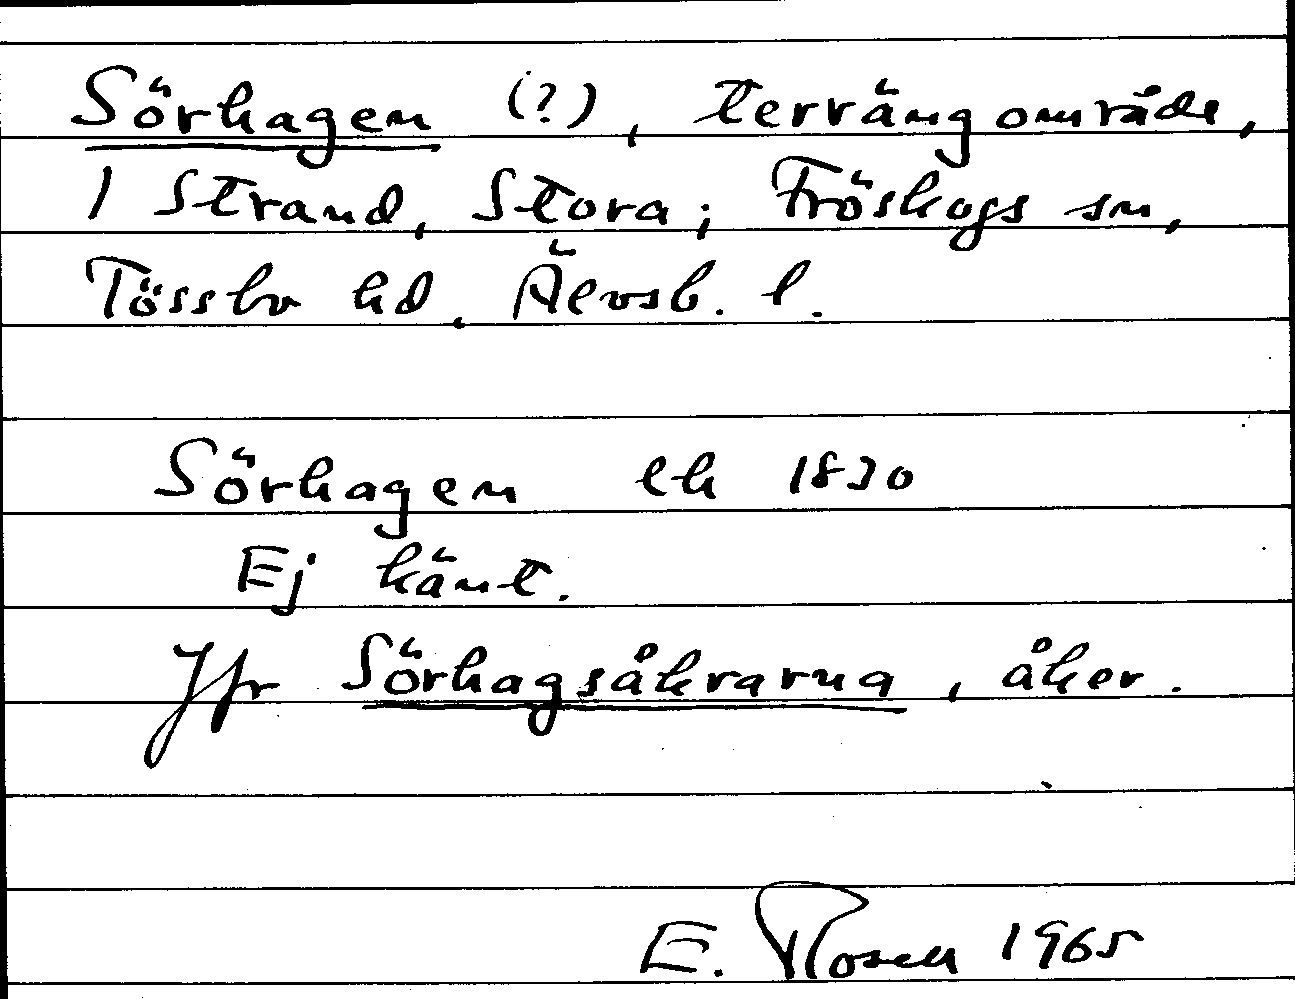 Sörhagen (?), terrängområde,
1 Strand, Stora; Fröskogs sn,
Tössbo hd. Älvsb. l.
Sörhagen eh 1830
Ej känt.
Jfr Sörhagsåkrarna, åker.
E. Rosell 1965